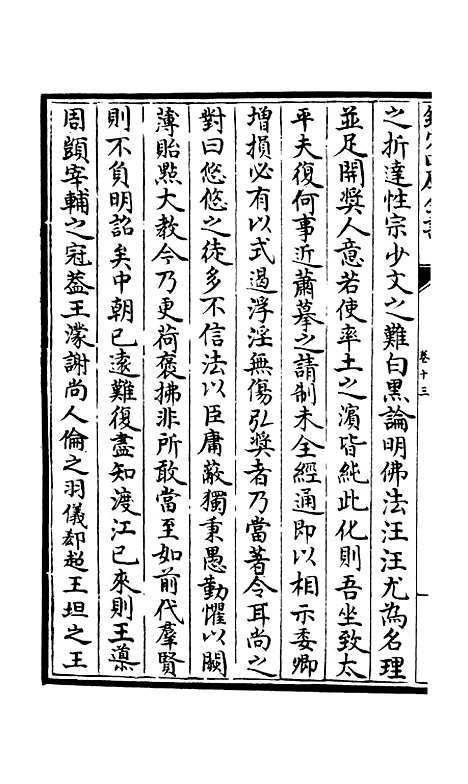 欽定四庫全書
卷十三
之折達性宗少文之難白黑論明佛法汪汪尤為名理
並足開奬人意若使率土之濱皆純此化則吾坐致太
平夫復何事近蕭摹之請制未全經通即以相示委卿
增損必有以式遏浮淫無傷弘奬者乃當著令耳尚之
對曰悠悠之徒多不信法以臣庸蔽獨秉愚勤懼以闕
薄貽點大教今乃更荷褒拂非所敢當至如前代羣賢
則不負明詔矣中朝已遠難復盡知渡江已來則王導
周顗宰輔之冠葢王濛謝尚人倫之羽儀郄超王坦之王